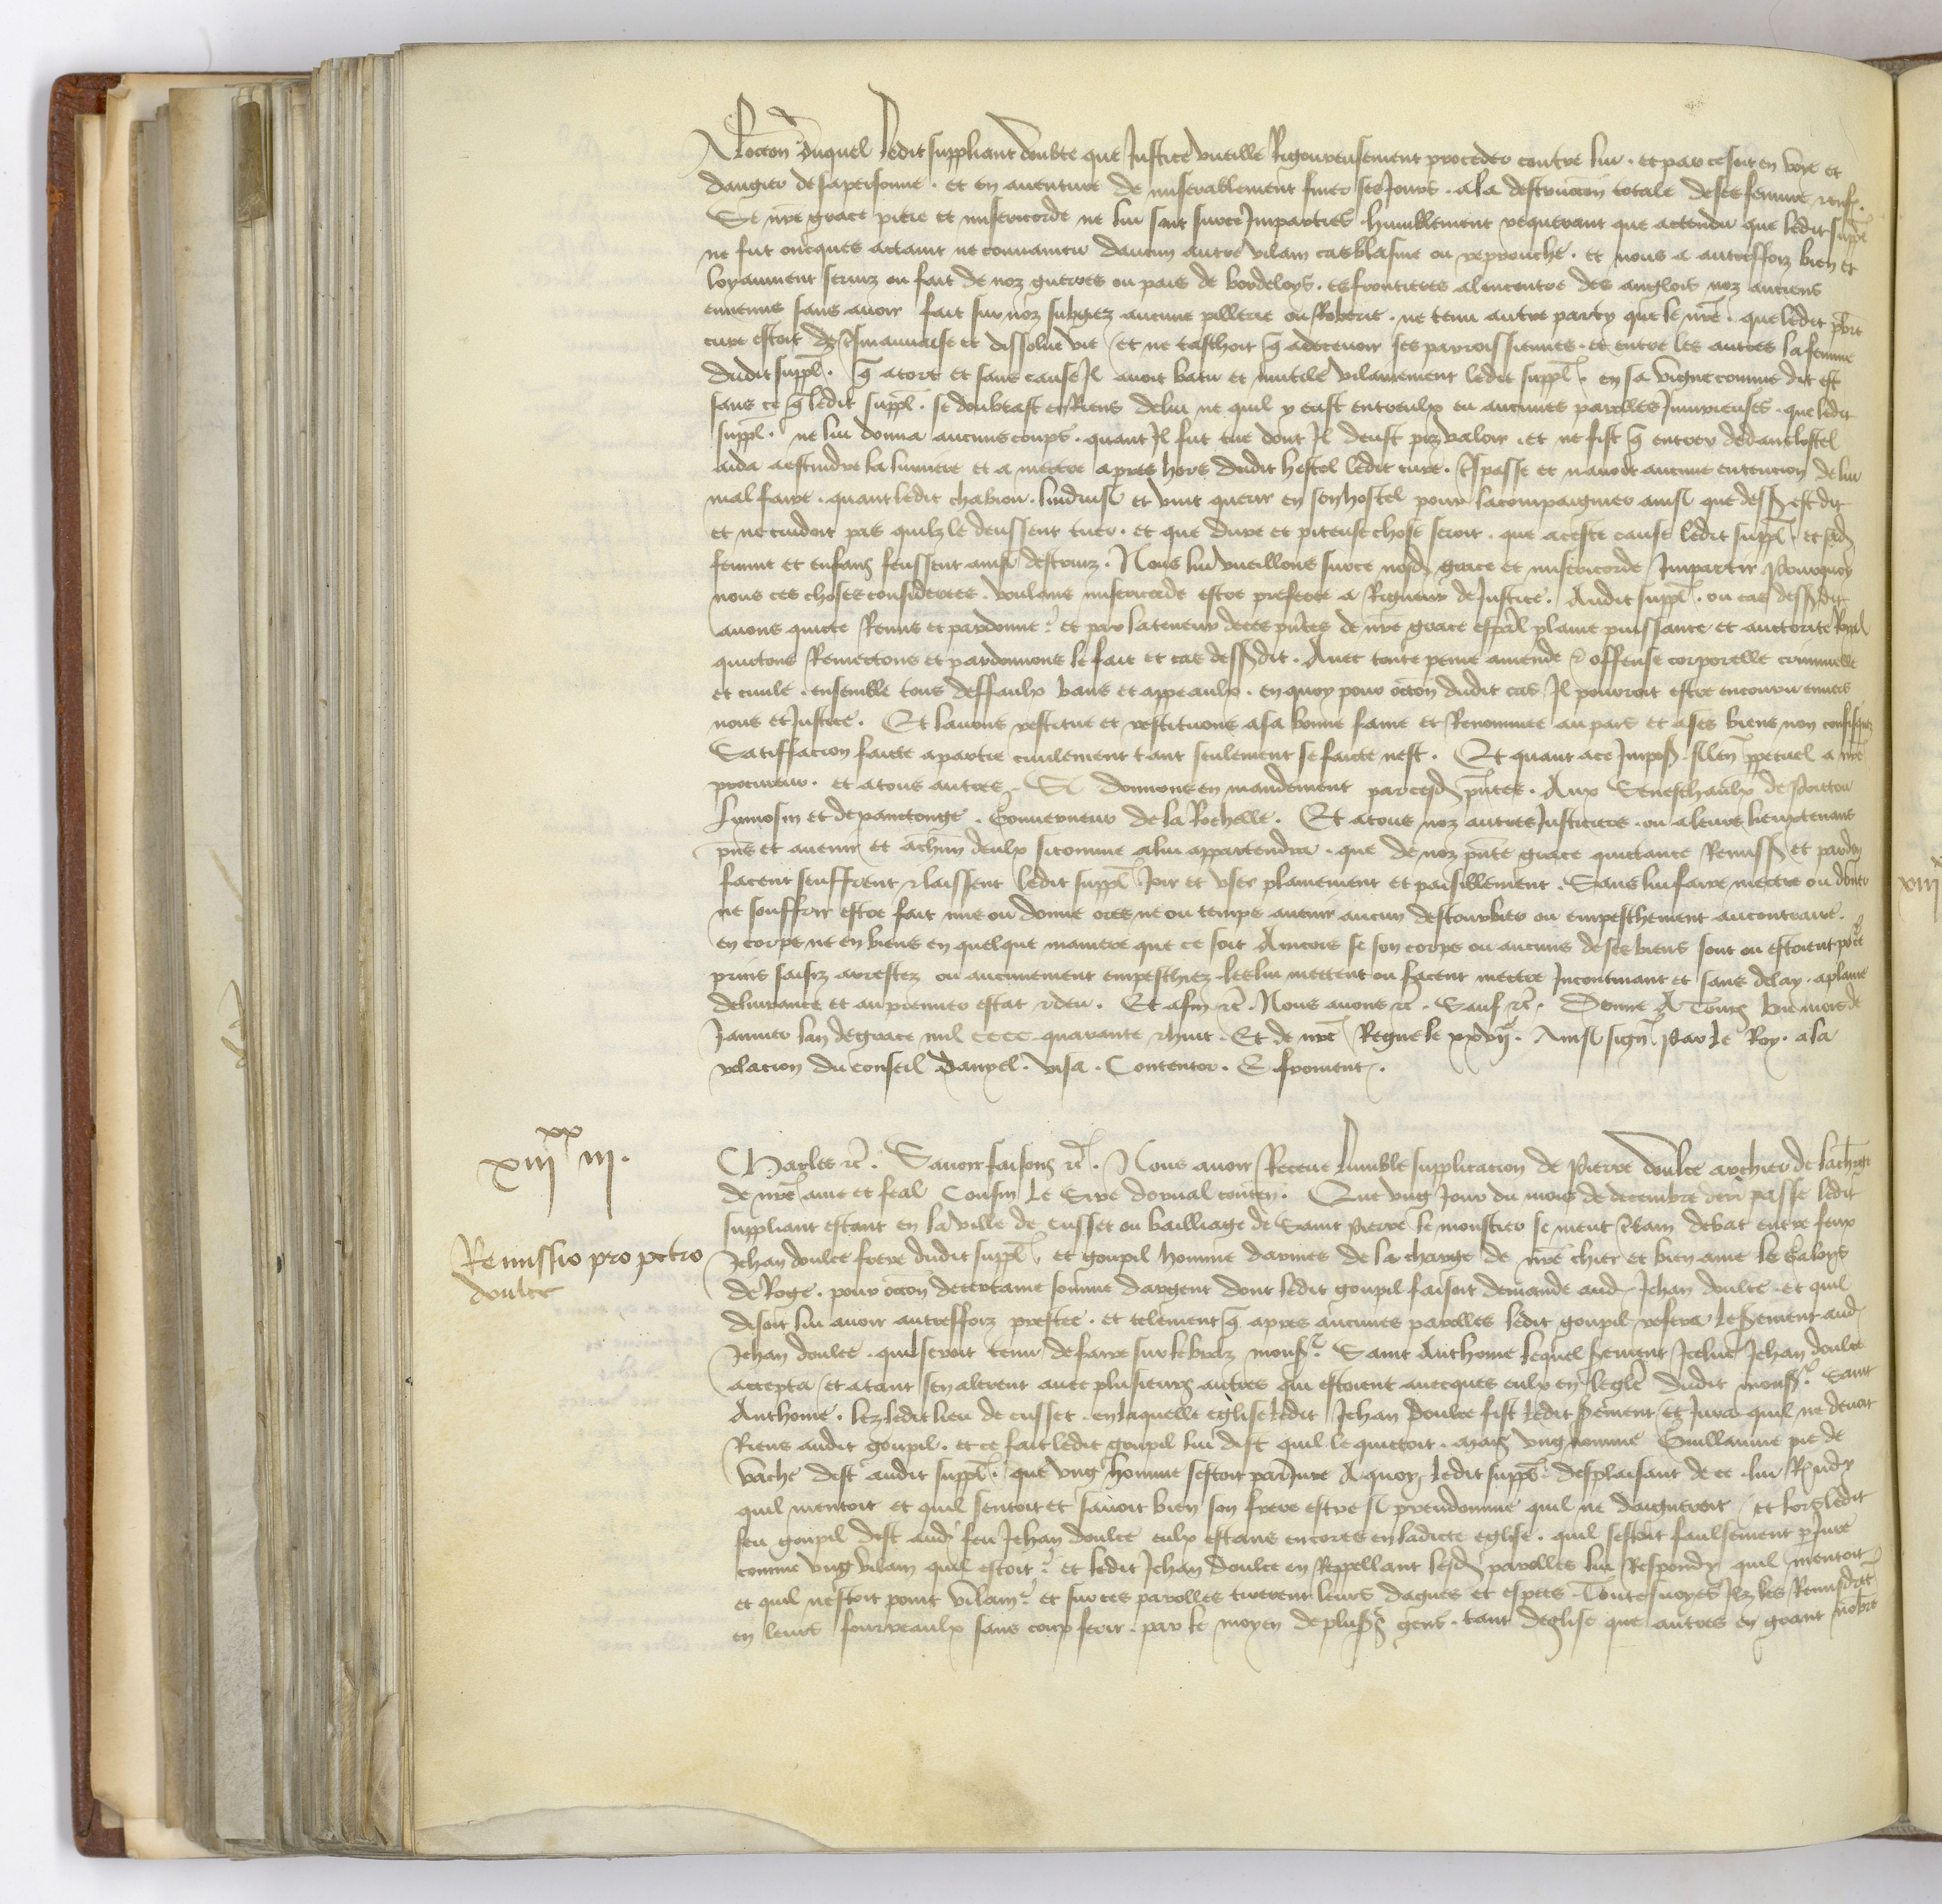 Loccon duquel ledit suppliant doubte que Justice vueille Rigoureusement proceder contre lui. et par ce soit en voye et
dangier de sa personne. et en aventure de miserablement finer ses Jours. a la destruccon totale de ses femme
Se nre grace pitie et misericorde ne lui sont sur ce Imparties humblement requerant que actendu que ledit suppl
ne fut oncques actaint ne convaincu daucun autre vilain cas blasme ou reprouche. et nous a autresfoiz bien et
loyaument serviz ou fait de noz guerres ou pais de bordeloys. es frontieres alencontre des anglois noz anciens
ennemis sans avoir fait sur noz subgiez aucune pillerie ou Roberie. ne tenu autre party que le nre. que ledit
cure estoit de mauvaise et dissolue vie et ne taschoit q a decevoir ses parroissiennes. et entre les autres la femme
dudit suppl. q a tort et sans cause Il avoit batu et mutile vilainement ledit suppl. en sa vigne comme dit est
sans ce q ledit suppl. se doubtast en Riens de lui ne quil y eust entreulx eu aucunes parolles Injurieuses. que ledit
suppl. ne lui donna aucuns coups. quant Il fut tue dont Il deust piz valoir. et ne fist q entrer dedans lostel
aida a estaindre la lumiere et a mectre apres hors dudit hostel ledit cure. passe et navoit aucune entencion de lui
mal faire. quant ledit chabion lindruist et vint querir en son hostel pour lacompaigner ainsi que dess est dit
et ne cuidoit pas quilz le deussent tuer. et que dure et piteuse chose seroit. que a ceste cause ledit suppl. et sesd
femme et enfans feussent ainsi destruiz. Nous lui vueillons sur ce nosd grace et misericorde Impartir Pourquoy
nous ces choses considerees. voulans misericorde estre preferee a Rigueur de Justice. Audit suppl. ou cas dess dit
avons quicte Remis et pardonne et par la teneur de ces pntes de nre grace espal plaine puissance et auctorite Royal
quictons Remectons et pardonnons le fait et cas dess dit. Avec toute peine amende & offense corporelle criminelle
et civile. ensemble tous deffaulx bans et appeaulx. en quoy pour occon dudit cas Il pourroit estre encouru envers
nous et Justice. Et lavons restitue et restituons a sa bonne fame et Renommee au pais et a ses biens non confisquez
Satiffacion faicte a partie civilement tant seulement se faicte nest. Et quant a ce Impos silen ppetuel a nre
procureur. et a tous autres. Si donnons en mandement par cesd pntes. Aux Seneschaulx de Poictou
Lymosin et de xanctonge. Gouverneur de la Rochelle. Et a tous noz autres Justiciers. ou a leurs lieuxtenans
pns et avenir et a chun deulx si comme a lui appartendra. que de noz pnte grace quictance Remiss et pardon
facent seuffrent & laissent ledit suppl Joir et user plainement et paisiblement. Sans lui faire mectre ou donner
ne souffrir estre fait mis ou donne ores ne ou temps avenir aucun destourbier ou empeschement au contraire.
en corps ne en biens en quelque maniere que ce soit Aincois se son corps ou aucuns de ses biens sont ou estoient po ce
prins saisiz arrestez ou aucunement empeschiez les lui mectent ou facent mectre Incontinant et sans delay. a plaine
delivrance et au premier estat & deu. Et afin &c. Nous avons &c. Sauf &c. Donne A Tours ou mois de
Janvier lan de grace mil CCCC quarante & huit. Et de nre Regne le xxvij. Ainsi sign Par le Roy. a la
relacion du conseil Danyel. Visa. Contentor. E froment.
xiij xx iij.
Remissio pro petro
doulce
Charles &c. Savoir faisons &c. Nous avoir Receue lumble supplicacion de Pierre doulce archier de la charge
de nre ame et feal Cousin le Sire dorval conten. Que ung Jour du mois de decembre dern passe ledit
suppliant estant en la ville de cusset ou bailliage de Saint pierre le monstier se meut certain debat entre feux
Jehan doulce frere dudit suppl. et goupil homme darmes de la charge de nre chier et bien ame le Galoys
de Roge. pour occon de certaine somme dargent dont ledit goupil faisoit demande aud Jehan doulce. et quil
disoit lui avoir autresfoiz prestee. et telement q apres aucunes parolles ledit goupil le serement aud
Jehan doulce. quil seroit tenu de faire sur le bras monsr Saint Anthoine lequel serement Icelui Jehan doulce
accepta et atant sen alerent avec plusieurs autres qui estoient avecques eulx en legle dudit monsr Saint
Anthoine. lez ledit lieu de cusset. en laquelle eglise ledit Jehan doulce fist ledit serement et Jura quil ne devoit
Riens audit goupil. et ce fait ledit goupil lui dist quil le quictoit. mais ung nomme Guillaume pie de
vache dist audit suppl. que ung homme sestoit parjure A quoy ledit suppl. desplaisant de ce. lui Rndy
quil mentoit et quil sentoit et savoit bien son frere estre si preudomme quil ne daigneroit et lors ledit
feu goupil dist aud feu Jehan doulce eulx estans encores en ladicte eglise. quil sestoit faulsement pjure
comme ung vilain quil estoit et ledit Jehan doulce en Reppellant lesd parolles lui Respondy quil mentoit
et quil nestoit point vilain. et sur ces parolles tirerent leurs dagues et espees. Toutesvoyes Ilz les Remisdrent
en leurs fourreaulx sans coup ferir. par le moyen de plus gens. tant deglise que autres en grant nobre